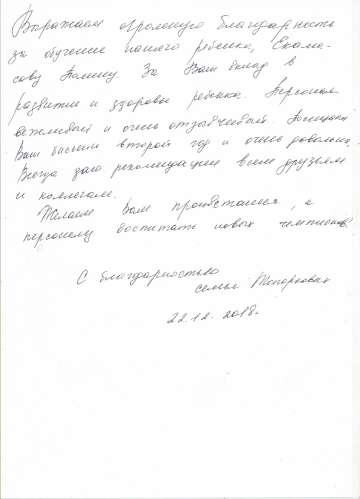 Выражаем огромную благодарность
за обучение нашего ребенка,
Полину. За Ваш вклад в
развитие и здоровье ребенка. Персонал
вежливый и очень отзывчивый. Посещаем
Ваш бассейн второй год и очень довольны.
Всегда даю рекомендации всем друзьям
и коллегам.
Желаем Вам процветания, а
персоналу воспитать новых чемпионов.
С благодарностью
семья
22.12.2018г.